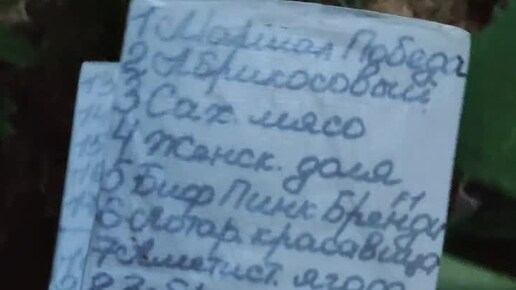 1 Маршал Победа
2 Абрикосовый
3 Сах. мясо
4 Женск. доля
5 Биф Пинк Бренди F1
6 Лотар. красавица
7 Аметист. ягода
8